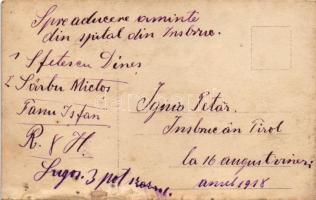 Spre aducere aminte
din spital din Insbruc.
1 Sfetescu Dénes
2 Sârbu Miclos
Fanu Isfan
R. & H.
Lugos. 3 pol
Ignia Petár
Insbruc án Tirol
la 16 august
anul 1918